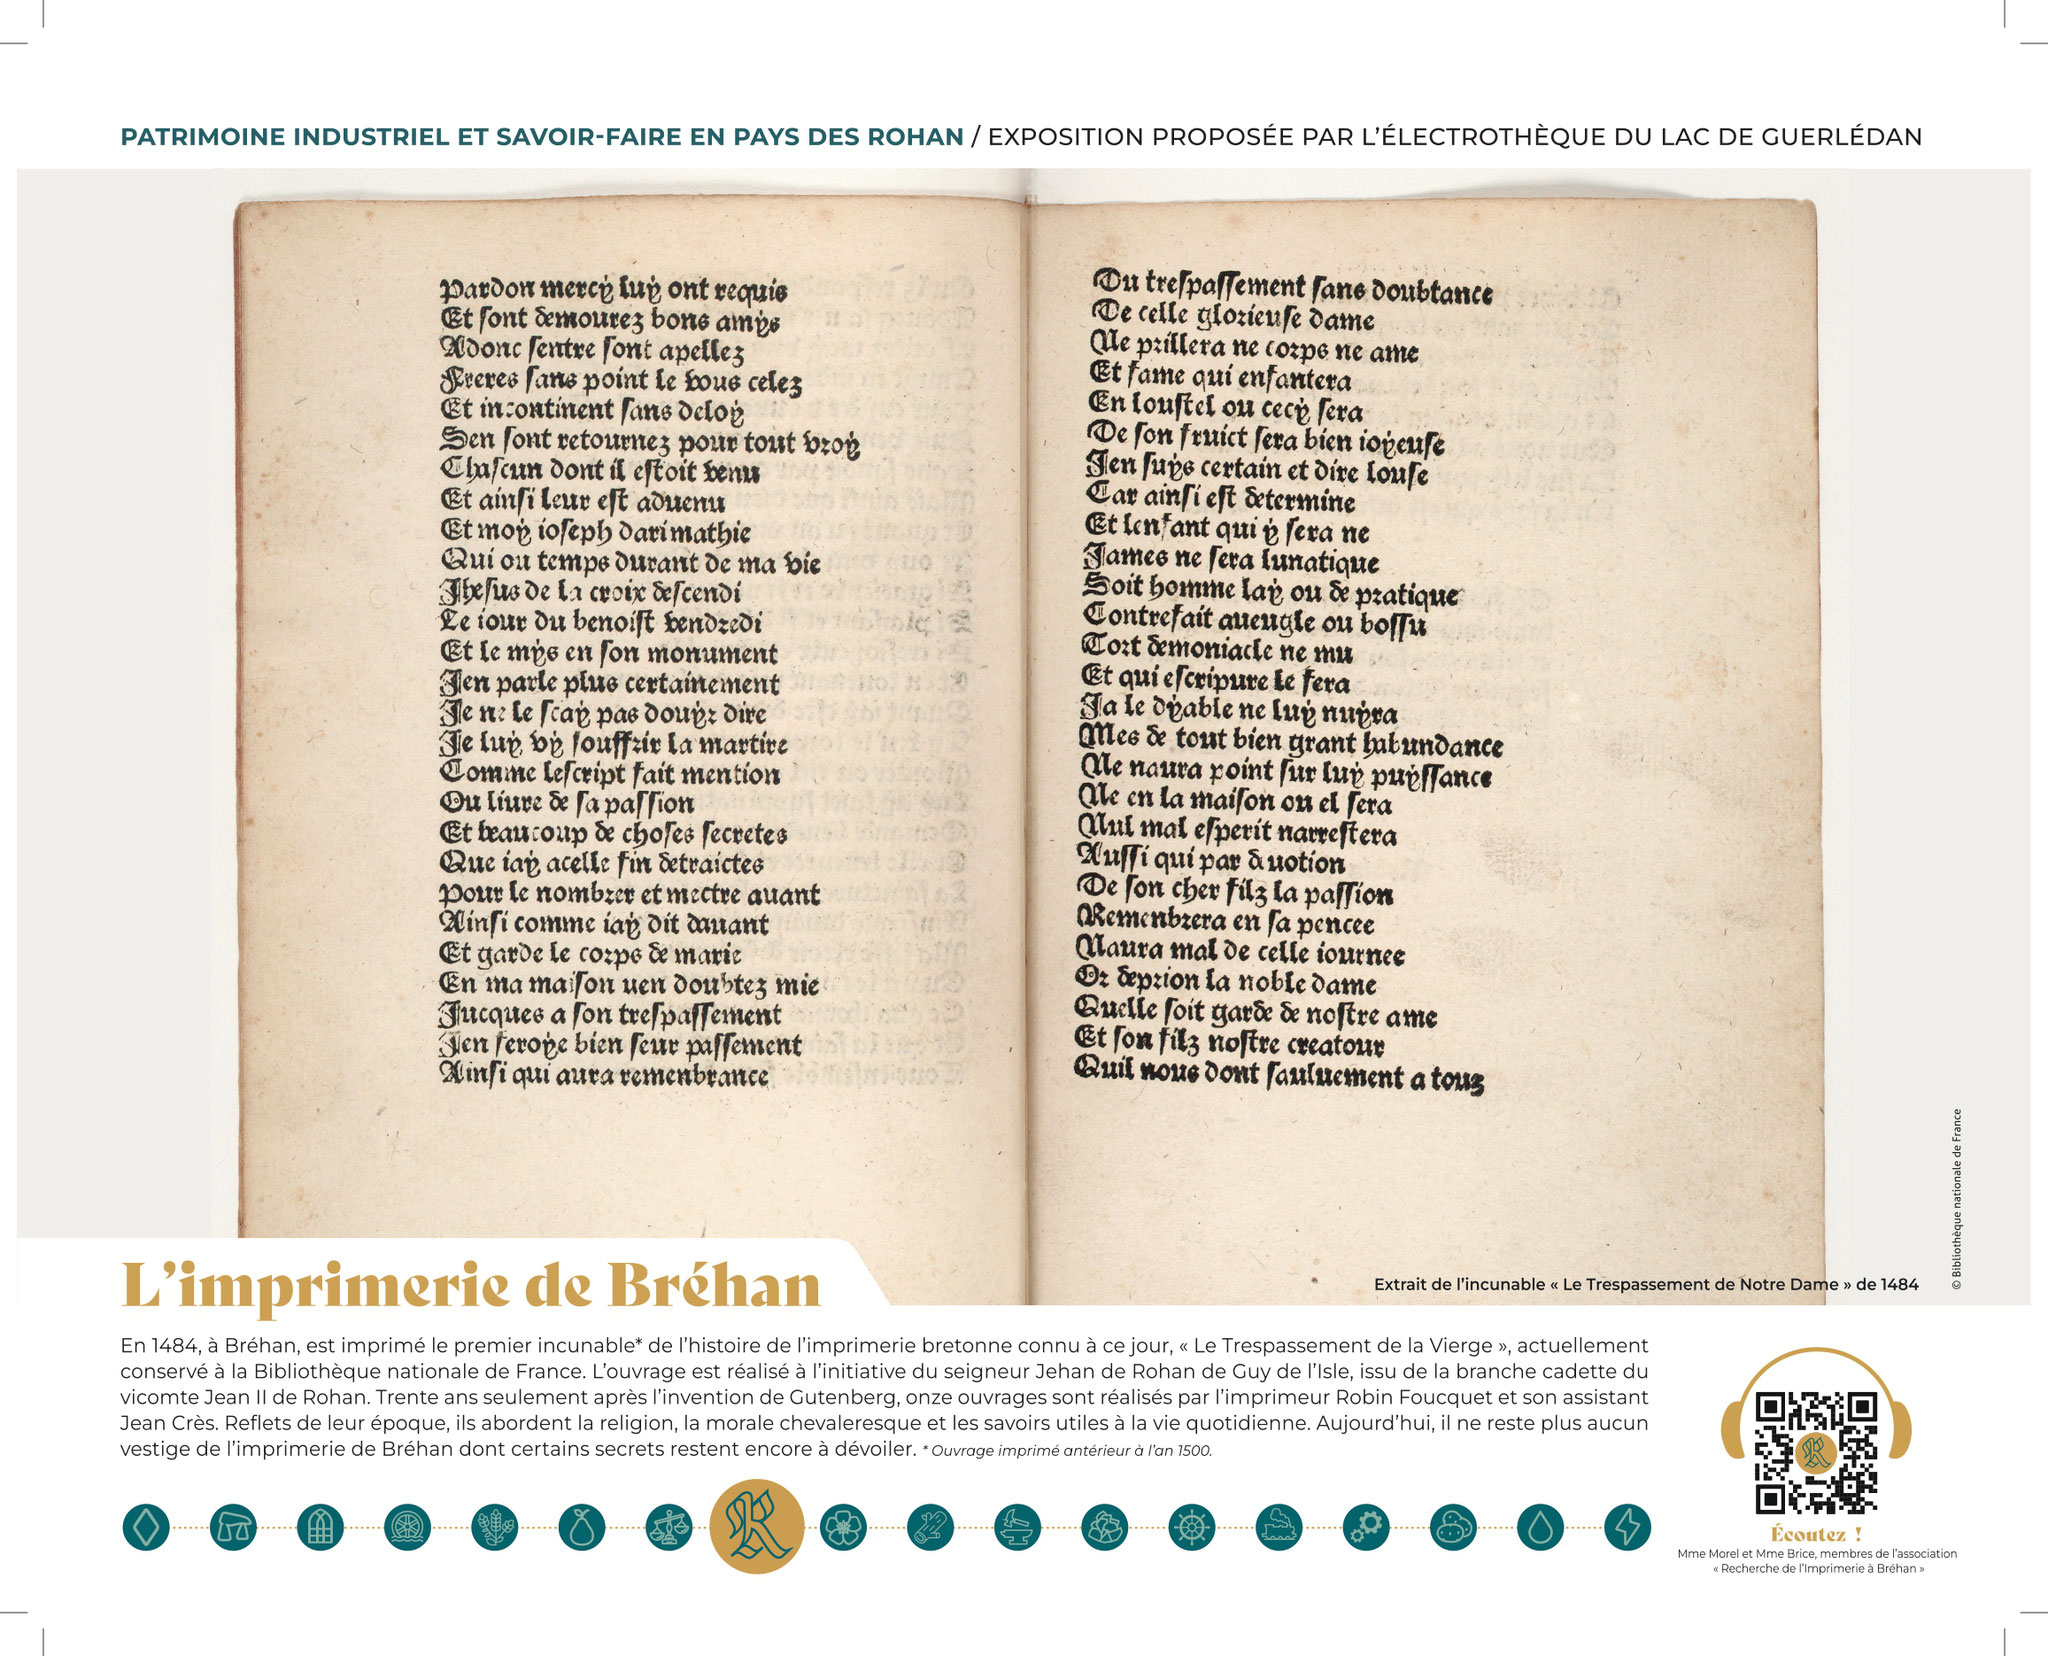 PATRIMOINE INDUSTRIEL ET SAVOIR-FAIRE EN PAYS DES ROHAN / EXPOSITION PROPOSÉE PAR L’ÉLECTROTHÈQUE DU LAC DE GUERLÉDAN
Pardon mercy luy ont requis
Et sont demourez bons amys
Adonc sentre sont apellez
Freres sans point le vous celez
Et incontinent sans deloy
Sen sont retournez pour tout vroy
Chascun dont il estoit venu
Et ainsi leur est aduenu
Et moy ioseph darimathie
Qui ou temps durant de ma vie
Jhesus de la croix descendi
Le iour du benoist vendredi
Et le mys en son monument
Jen parle plus certainement
Je ne le scay pas douyr dire
Je luy vy souffrir la martire
Comme lescript fait mention
Ou liure de sa passion
Et beaucoup de choses secretes
Que iay acelle fin detraictes
Pour le nombrer et mectre auant
Ainsi comme iay dit dauant
Et garde le corps de marie
En ma maison uen doubtez mie
Jucques a son trespassement
Jen feroye bien seur passement
Ainsi qui aura remenbrance
Du trespassement sans doubtance
De celle glorieuse dame
Ne prillera ne corps ne ame
Et fame qui enfantera
En loustel ou cecy sera
De son fruict sera bien ioyeuse
Jen suys certain et dire louse
Car ainsi est determine
Et lenfant qui y sera ne
James ne sera lunatique
Soit homme lay ou de pratique
Contrefait aueugle ou bossu
Tort demoniacle ne mu
Et qui escripure le fera
Ja le dyable ne luy nuyra
Mes de tout bien grant habundance
Ne naura point sur luy puyssance
Ne en la maison ou el sera
Nul mal esperit narrestera
Aussi qui par deuotion
De son cher filz la passion
Remenbrera en sa pencee
Naura mal de celle iournee
Or deprion la noble dame
Quelle soit garde de nostre ame
Et son filz nostre creatour
Quil nous dont sauluement a touz
© Bibliothèque nationale de France
Extrait de l’incunable « Le Trespassement de Notre Dame » de 1484
L’imprimerie de Bréhan
En 1484, à Bréhan, est imprimé le premier incunable* de l’histoire de l’imprimerie bretonne connu à ce jour, « Le Trespassement de la Vierge », actuellement
conservé à la Bibliothèque nationale de France. L’ouvrage est réalisé à l’initiative du seigneur Jehan de Rohan de Guy de l’Isle, issu de la branche cadette du
vicomte Jean II de Rohan. Trente ans seulement après l’invention de Gutenberg, onze ouvrages sont réalisés par l’imprimeur Robin Foucquet et son assistant
Jean Crès. Reflets de leur époque, ils abordent la religion, la morale chevaleresque et les savoirs utiles à la vie quotidienne. Aujourd’hui, il ne reste plus aucun
vestige de l’imprimerie de Bréhan dont certains secrets restent encore à dévoiler. * Ouvrage imprimé antérieur à l’an 1500.
R
R
Écoutez !
Mme Morel et Mme Brice, membres de l’association
« Recherche de l’Imprimerie à Bréhan »